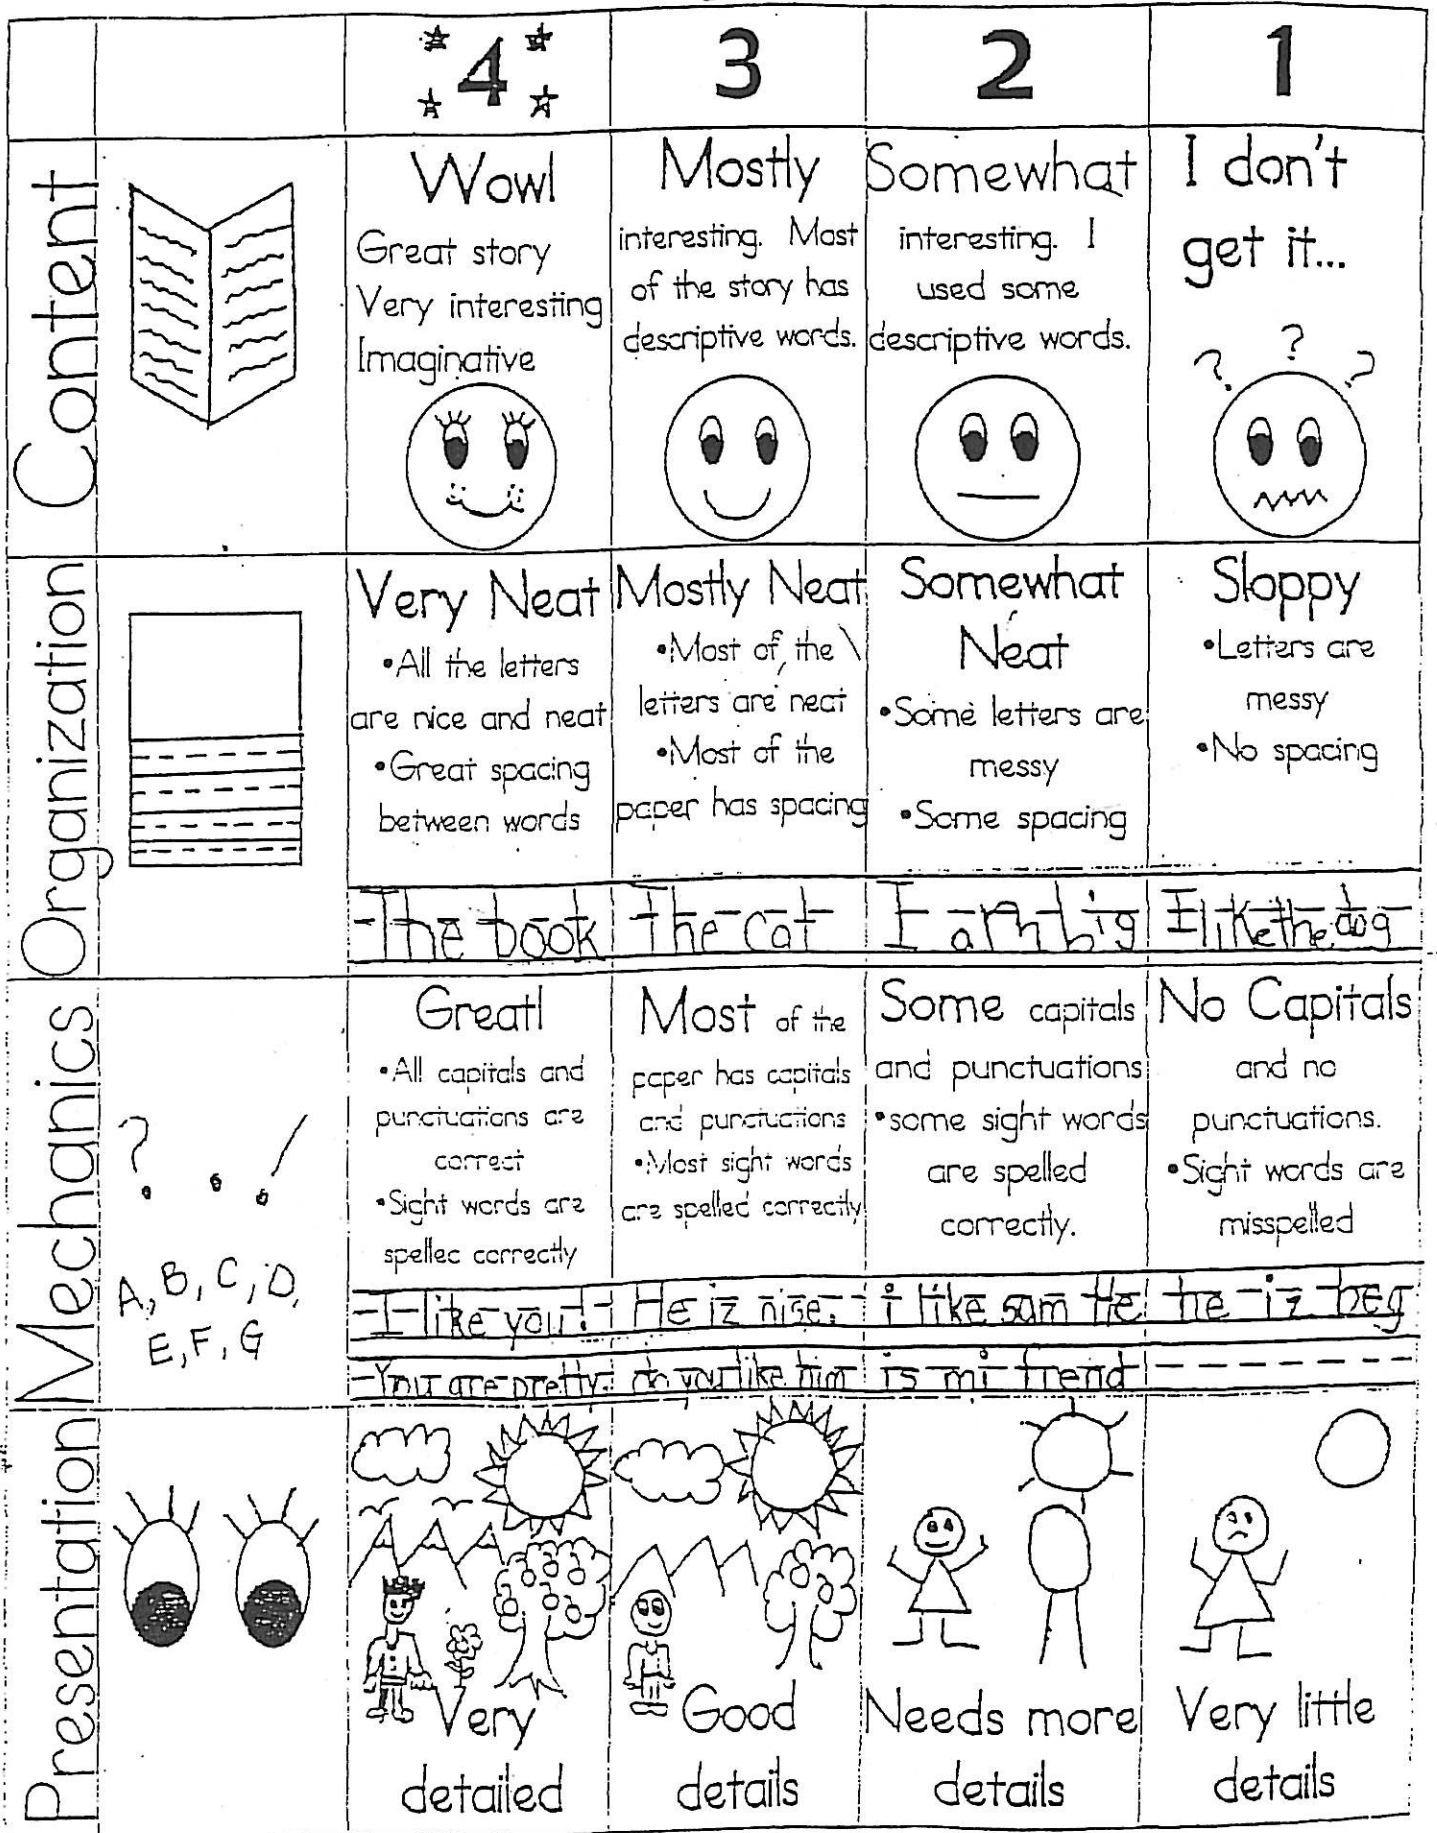 4 3 2 1
Content
Wow!
Great story
Very interesting
Imaginative
Mostly
interesting. Most
of the story has
descriptive words.
Somewhat
interesting. I
used some
descriptive words.
I don't
get it...
? ? ?
Organization
Very Neat
•All the letters
are nice and neat
•Great spacing
between words
The book
Mostly Neat
•Most of the
letters are neat
•Most of the
paper has spacing
The cat
Somewhat
Neat
•Some letters are
messy
•Some spacing
I am big
Sloppy
•Letters are
messy
•No spacing
I likethedog
Mechanics
? . !
A, B, C, D,
E, F, G
Great!
•All capitals and
punctuations are
correct
•Sight words are
spelled correctly
I like you!
You are pretty.
Most of the
paper has capitals
and punctuations
•Most sight words
are spelled correctly
He iz nise.
do you like him
Some capitals
and punctuations
•some sight words
are spelled
correctly.
i like sam He
is mi frend
No Capitals
and no
punctuations.
•Sight words are
misspelled
he iz beg
Presentation
Very
detailed
Good
details
Needs more
details
Very little
details